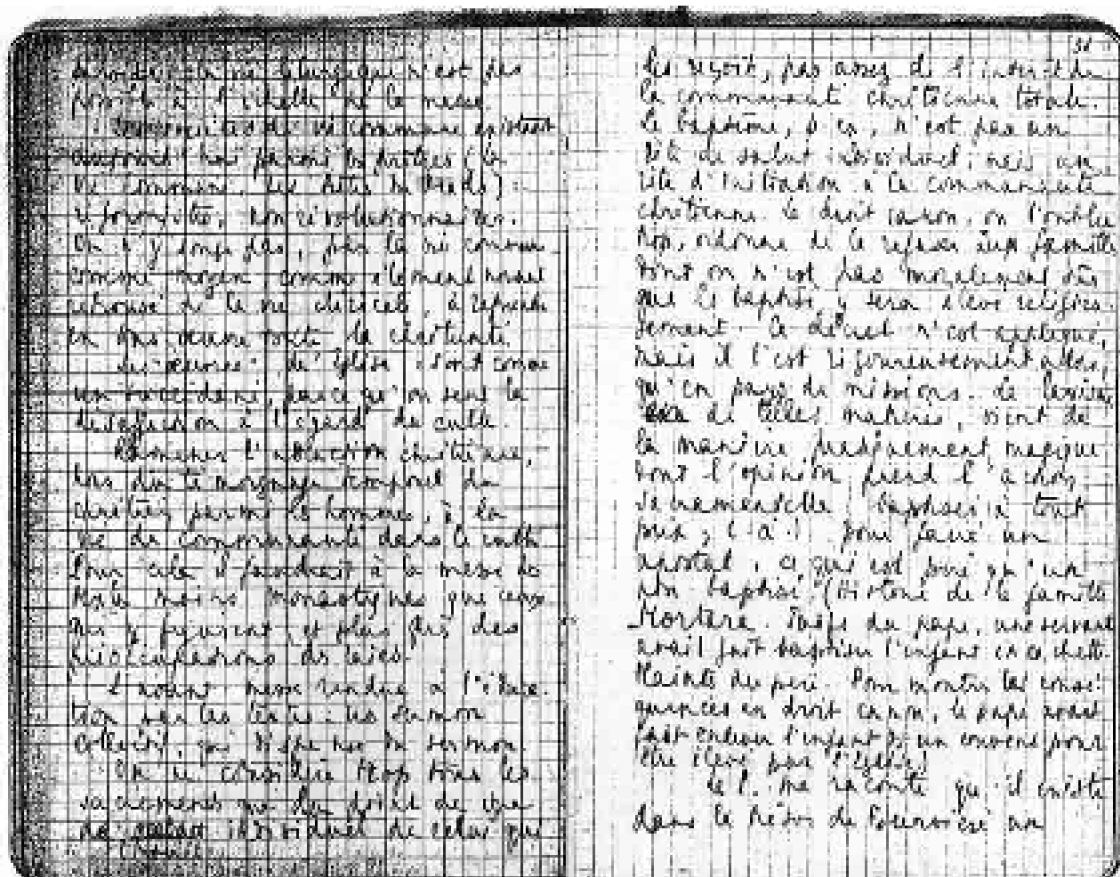 vie liturgique n'est pas
possible à l'échelle de la masse.
de vie commune existent
aujourd'hui parmi les prêtres (la
vie commune, les
réformistes, non révolutionnaires.
On n'y songe pas, par la vie commune
comme moyen comme élément normal
de la vie cléricale, à reprendre
en sous œuvre toute la chrétienté
Les "œuvres" de l'église sont comme
un succédané, parce qu'on sent la
désaffection à l'égard du culte.
Ramener l'instruction chrétienne,
lors du témoignage temporel du
chrétien parmi les hommes, à la
vie de communauté dans le culte
Pour cela il faudrait à la messe des
textes moins monastiques que ceux
qui y figurent, et plus près des
préoccupations des laïcs.
L'avant messe rendue à l'
tion sur les textes : un sermon
collectif, qui du sermon.
On ne considère trop tous les
sacrements que du point de vue
du individuel de celui qui
31
les reçoit, pas assez de l'intérêt de
la communauté chrétienne totale.
Le baptême, p. ex., n'est pas un
rite de salut individuel, mais un
rite d'initiation à la communauté
chrétienne. Le droit canon, on l'oublie
trop, ordonne de le refuser aux familles
dont on n'est pas moralement sûr
que le baptisé y sera élevé religieu-
sement. Ce décret n'est appliqué,
mais il l'est rigoureusement alors,
qu'en pays de missions. Le
de telles matières, vient de
la manière magique
dont l'opinion prend l'action
sacramentelle. Baptiser à tout
prix, c'est à dire pour faire un
apostat, ce qui est pire qu'un
non baptisé. (Histoire de la famille
Mortara. Juifs du pape, une servante
avait fait baptiser l'enfant en cachette.
Plainte du père. Pour montrer les consé-
quences en droit canon, le pape avait
fait enlever l'enfant un couvent pour
être élevé par l'église)
Le P. me raconte qu'il existe
dans le trésor de Fourvière un